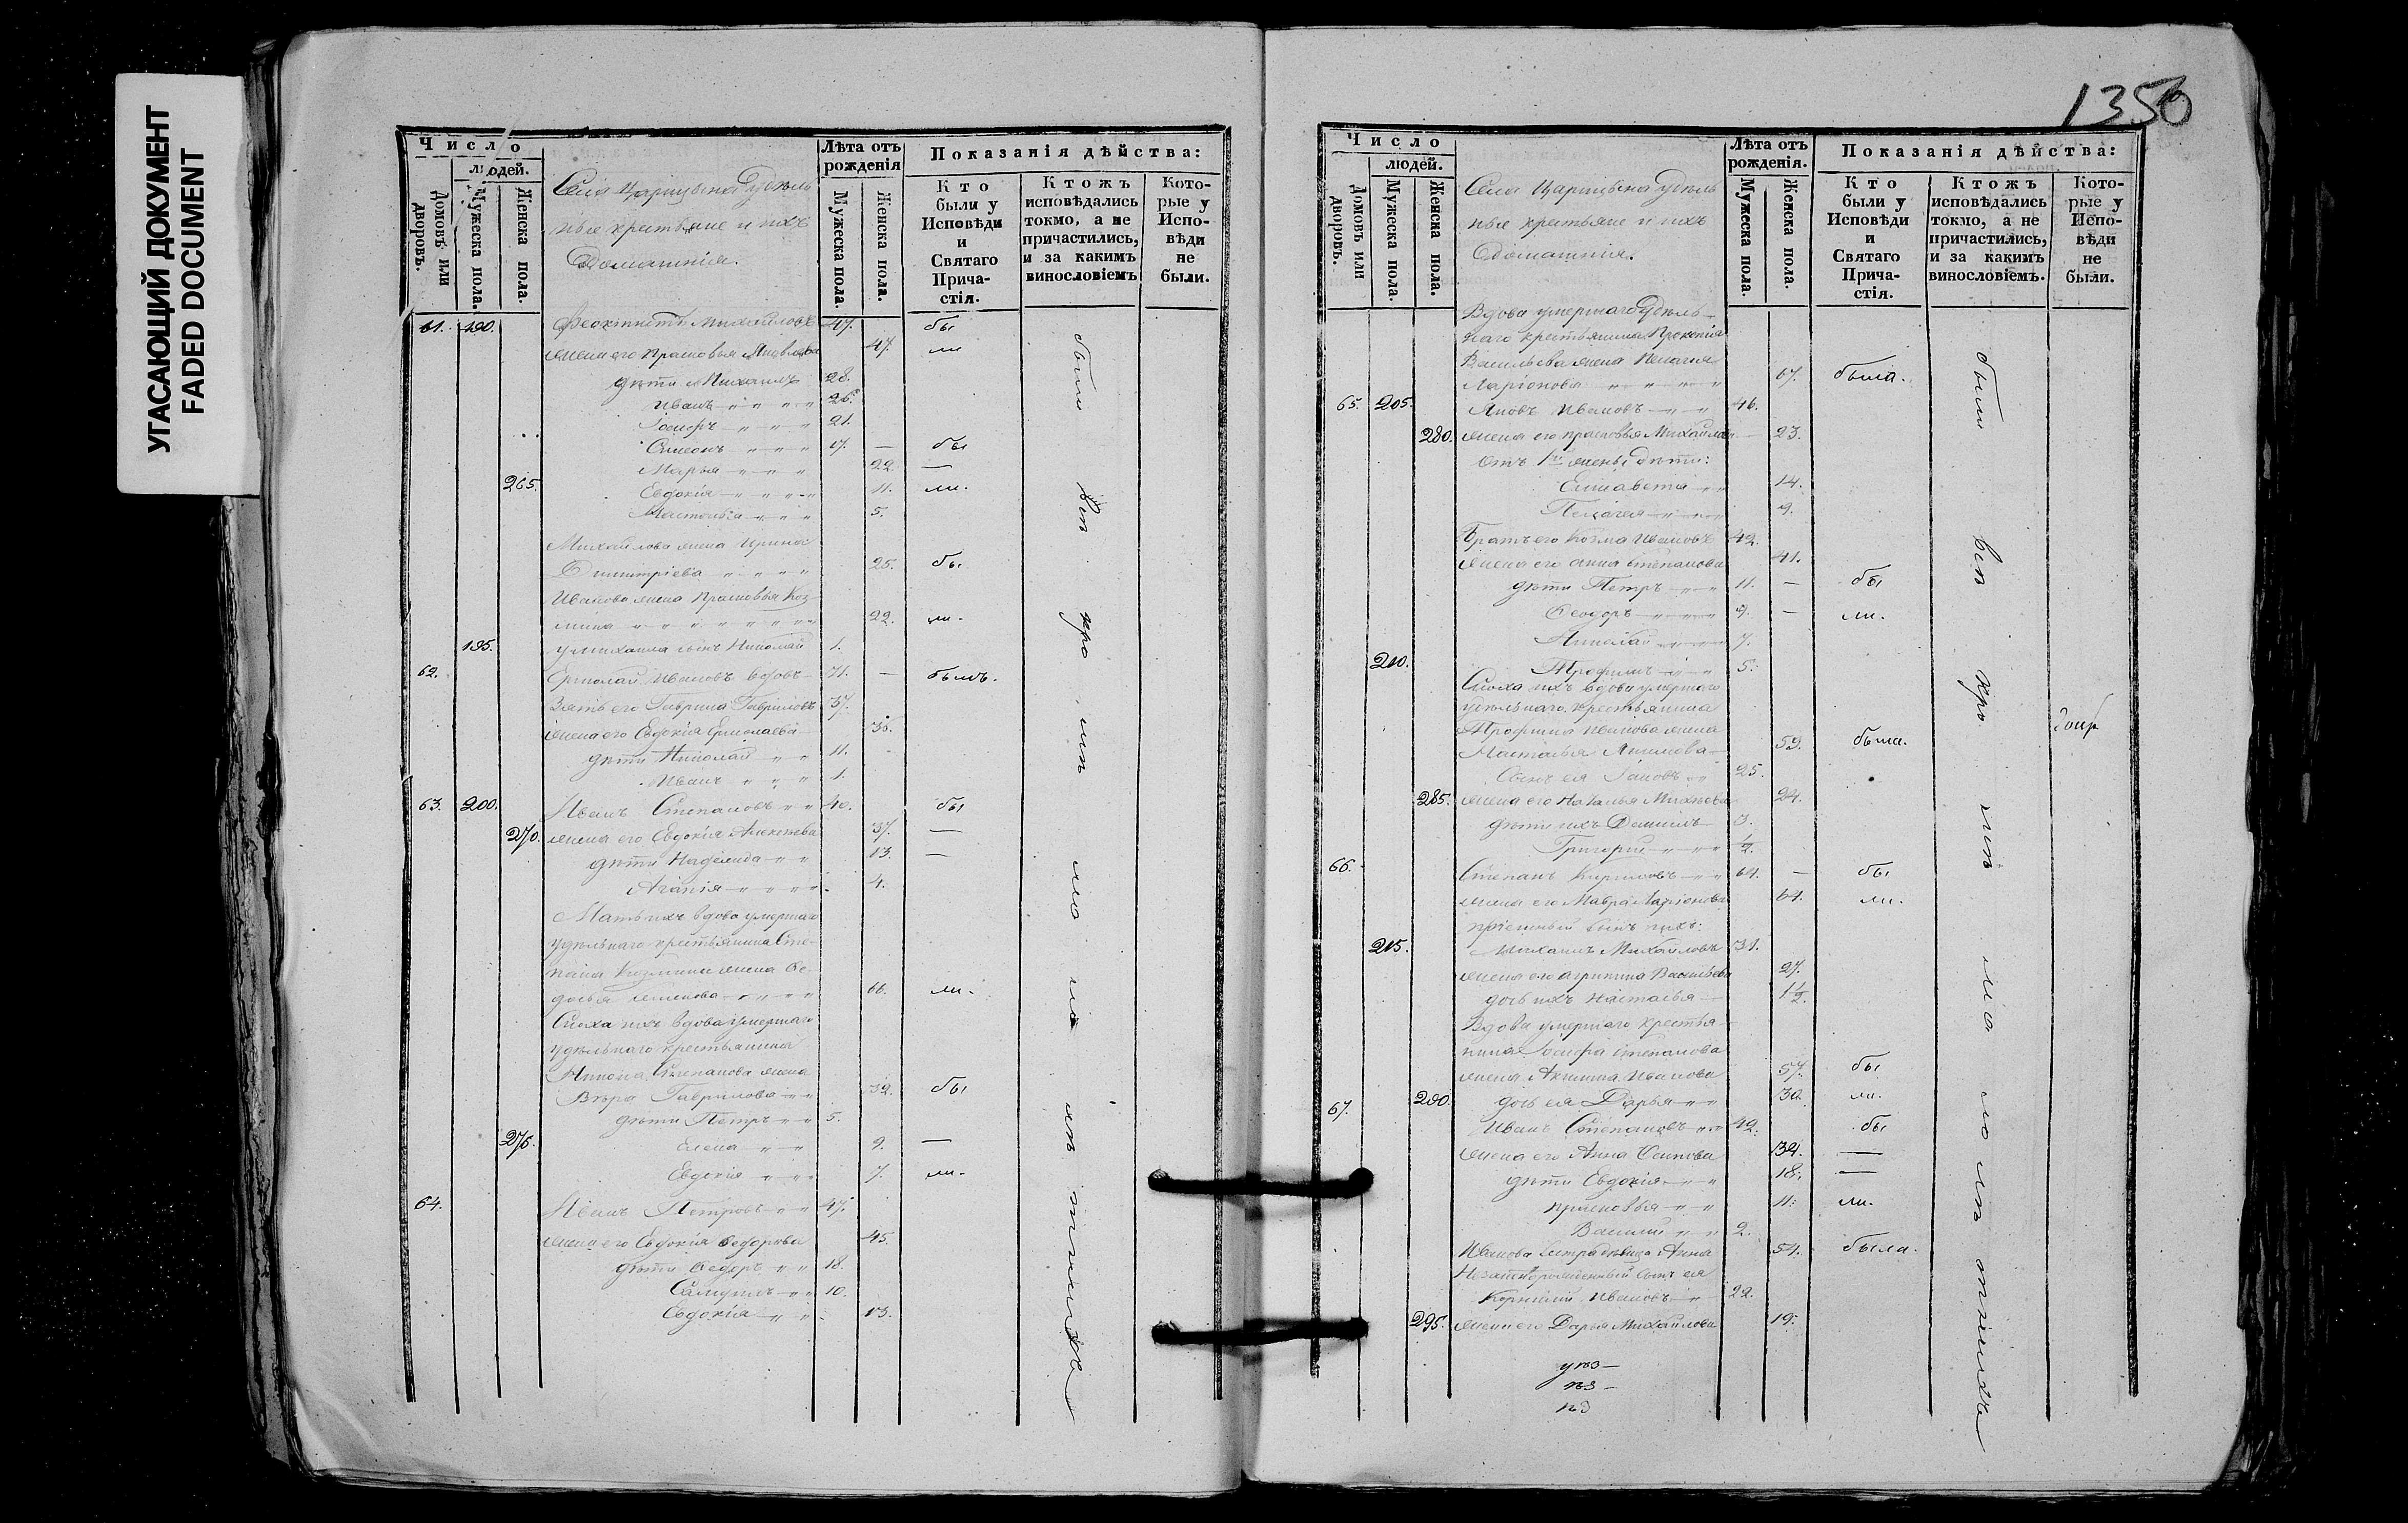 УГАСАЮЩИЙ ДОКУМЕНТ
FADED DOCUMENT
Число
людей.
Домовъ или дворовъ.
Мужеска пола.
Женска пола.
Села Царицына удѣль
ные крестьяне и ихъ
домашнія.
Лѣта отъ рожденія
Мужеска пола.
Женска пола.
Показанія дѣйства:
Кто были у Исповѣди и Святаго Причастія.
Ктожъ исповѣдались токмо, а не причастились, и за какимъ винословіемъ
Которые у Исповѣди не были.
61. 190. Феоктистъ Михайловъ 47. бы
жена его Прасковья Яковлева 47. ли
дѣти Михаилъ 28.
Иванъ 26.
Іосифъ 21.
Симеонъ 17. — бы
Марья 22. —
265. Евдокія 11. ли.
Настасья 5.
Михайлова жена Ирина
Димитріева 25. бы
Иванова жена Прасковья Коз-
мина 22. ли.
195. у Михаила сынъ Николай 1.
62. Ермолай Ивановъ вдовъ 71. — былъ.
Зять его Гаврила Гавриловъ 37.
жена его Евдокія Ермолаева 36.
дѣти Николай 11.
Иванъ 1.
63. 200. Иванъ Степановъ 40. бы
270. жена его Евдокія Алексѣева 37. —
дѣти Надежда 13. —
Агапія 4.
Мать ихъ вдова умершаго
удѣльнаго крестьянина Сте-
пана Козмина жена Ѳе-
досья 66. ли.
Сноха ихъ вдова умершаго
удѣльнаго крестьянина
Степанова жена
Вѣра Гаврилова 32. бы
дѣти Петръ 5.
275. Елена 9. —
Евдокія 7. ли.
64. Иванъ Петровъ 47.
жена его Евдокія Ѳедорова 45.
дѣти Ѳедоръ 18.
Самуилъ 10.
Евдокія 13.
1350
Число
людей.
Домовъ или дворовъ.
Мужеска пола.
Женска пола.
Села Царицына удѣль
ные крестьяне и ихъ
домашнія.
Лѣта отъ рожденія.
Мужеска пола.
Женска пола.
Показанія дѣйства:
Кто были у Исповѣди и Святаго Причастія.
Ктожъ исповѣдались токмо, а не причастились, и за какимъ винословіемъ.
Которые у Исповѣди не были.
Вдова умершаго удѣль-
наго крестьянина Прокопія
Васильева жена Пелагея
Ларіонова 67. была.
65. 205. Яковъ Ивановъ 46.
280. жена его Прасковья Михайлова 23.
Отъ 1й жены дѣти:
Елисавета 14.
Пелагея 9.
Братъ его Козма Ивановъ 42.
жена его Анна Степанова 41.
дѣти Петръ 11. — бы
Ѳеодоръ 9. — ли.
Николай 7.
210. Трофимъ 5.
Сноха ихъ вдова умершаго
удѣльнаго крестьянина
Трофима Иванова жена
Настасья Акимова 59. была.
Сынъ ея Іаковъ 25.
285. жена его Наталья 24.
дѣти ихъ Даніилъ 3.
Григорій ½.
66. Степанъ Кириловъ 64. — бы
жена его Мавра Ларіонова 64. ли.
пріемный сынъ ихъ:
215. Михаилъ Михайловъ 31.
жена его Агрипина Васильева 27.
дочь ихъ Настасья 1½.
Вдова умершаго крестья-
нина Іосифа Степанова
жена Акилина Иванова 57. бы
290. дочь ея Дарья 30. ли.
67. Иванъ Степановъ 42. бы
жена его Анна Осипова 34. —
дѣти Евдокія 18. —
Прасковья 11. ли.
Василій 2.
Иванова сестра дѣвица Анна 54. была.
Незаконорожденный сынъ ея
Корнилій Ивановъ 22.
295. жена его Дарья Михайлова 19.